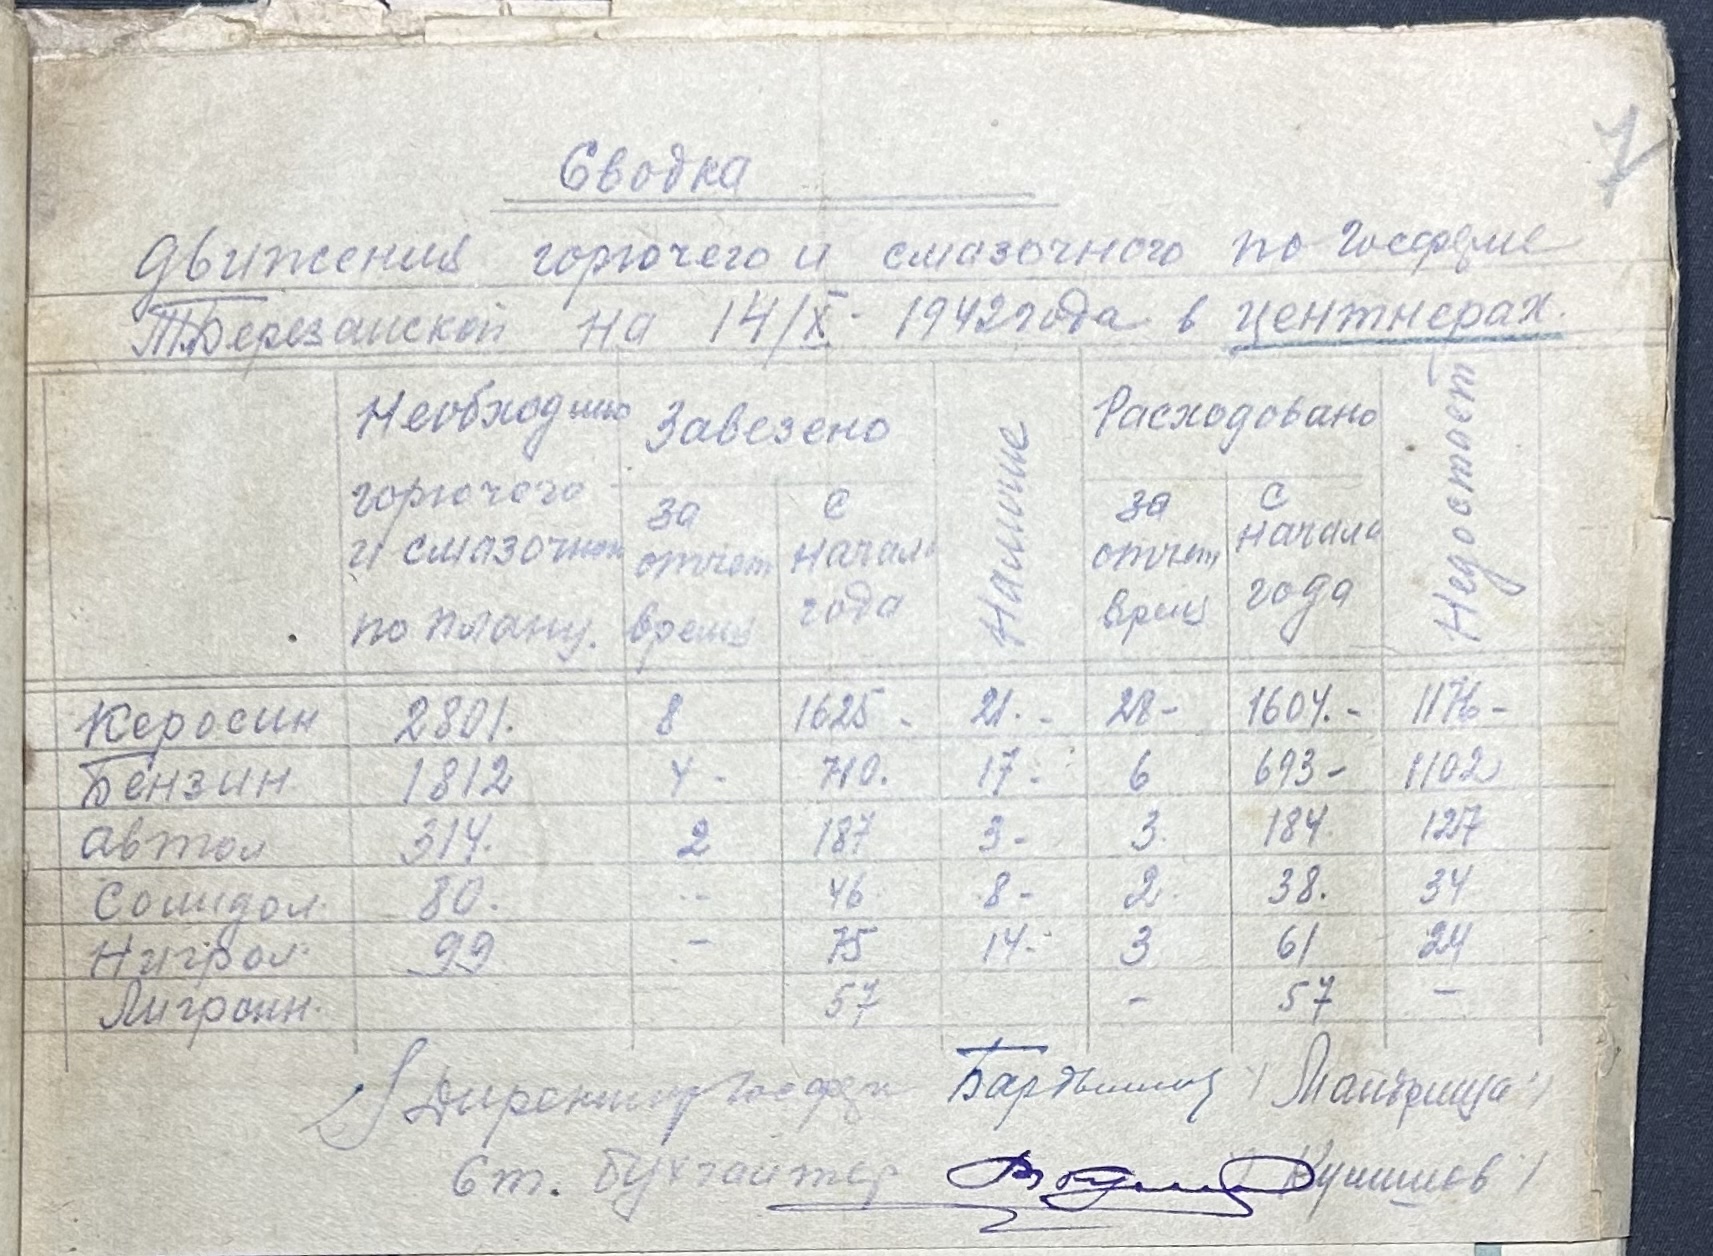 7
Сводка
движения горючего и смазочного по Госферме
Т.Березанской на 14/X- 1942 года в центнерах.
Необходимо горючего и смазочн по плану. Завезено Наличие Расходовано Недостает
за отчетн время с начала года за отчетн время с начала года
Керосин 2801. 8 1625- 21.- 28- 1604.- 1176-
Бензин 1812 4- 710. 17- 6 693- 1102
Автол 314. 2 187 3- 3. 184 127
Солидол. 80. -- 46 8- 2. 38. 34
Нигрол. 99 - 75 14- 3 61 24
Лигроин. 57 - 57 -
Директор Госфер
Ст. бухгалтер